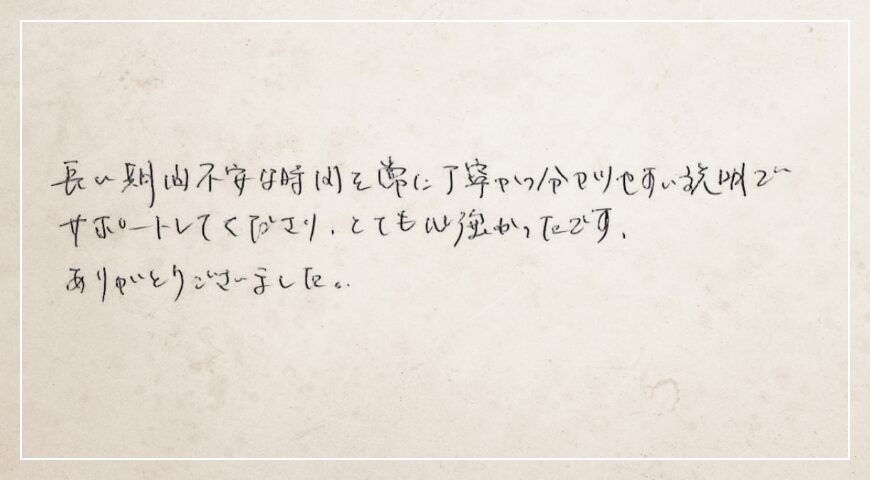 長い期間不安な時間を常に丁寧かつ分かりやすい説明で
サポートしてくださり、とても心強かったです。
ありがとうございました。